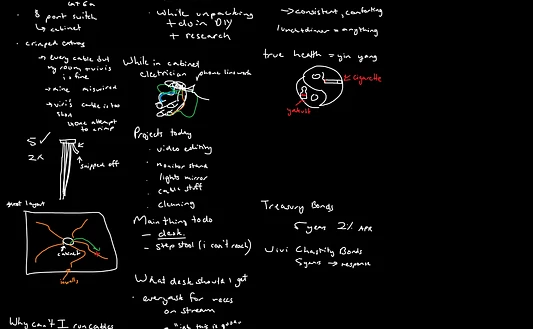 cat 6a
8 port switch
↳ cabinet
crimped extras
→ every cable but
my room + vivis
is fine
→ mine miswired
→ vivi's cable is too
short
→ one attempt
to crimp
5 ✓
2x
snipped off
layout
cabinet
walls
Why can't I run cables
while unpacking
+ do in DIY
+ research
While in cabinet
electrician phone linework
Projects today
· video editing
· monitor stand
· lights mirror
· cable stuff
· cleaning
Main thing to do
– desk
– step stool (i can't reach)
What desk should I get
· everyest for
on stream
this is
→ consistent, comforting
lunch + dinner = anything
true health = yin yang
cigarette
yakult
Treasury Bonds
5 years 2% APR
Vivi Chastity Bonds
5 years → response